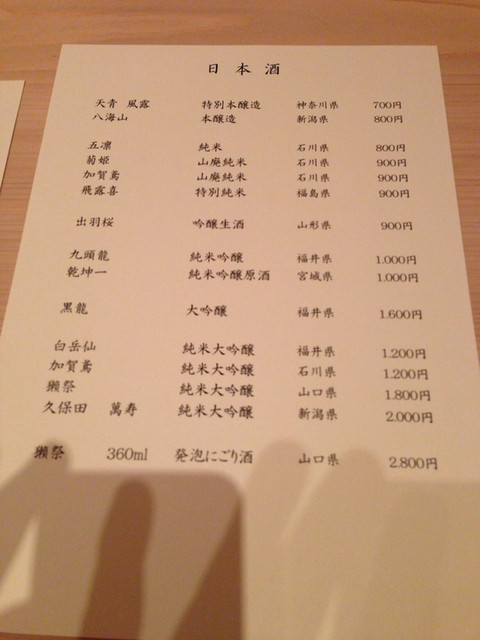 日本酒
天青 風露 特別本醸造 神奈川県 700円
八海山 本醸造 新潟県 800円
五凛 純米 石川県 800円
菊姫 山廃純米 石川県 900円
加賀鳶 山廃純米 石川県 900円
飛露喜 特別純米 福島県 900円
出羽桜 吟醸生酒 山形県 900円
九頭龍 純米吟醸 福井県 1.000円
乾坤一 純米吟醸原酒 宮城県 1.000円
黒龍 大吟醸 福井県 1.600円
白岳仙 純米大吟醸 福井県 1.200円
加賀鳶 純米大吟醸 石川県 1.200円
獺祭 純米大吟醸 山口県 1.800円
久保田 萬寿 純米大吟醸 新潟県 2.000円
獺祭 360ml 発泡にごり酒 山口県 2.800円